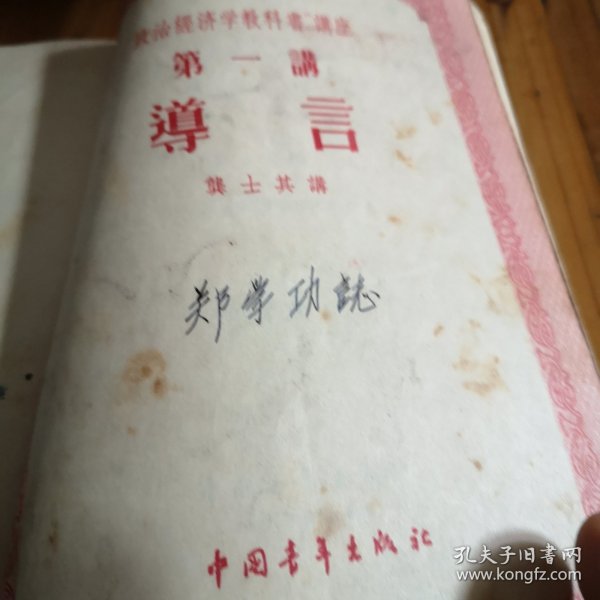 政治经济学教科書講座
第一講
導言
龔士其講
郑学功誌
中国青年出版社
孔夫子旧書网
www.kongfz.com